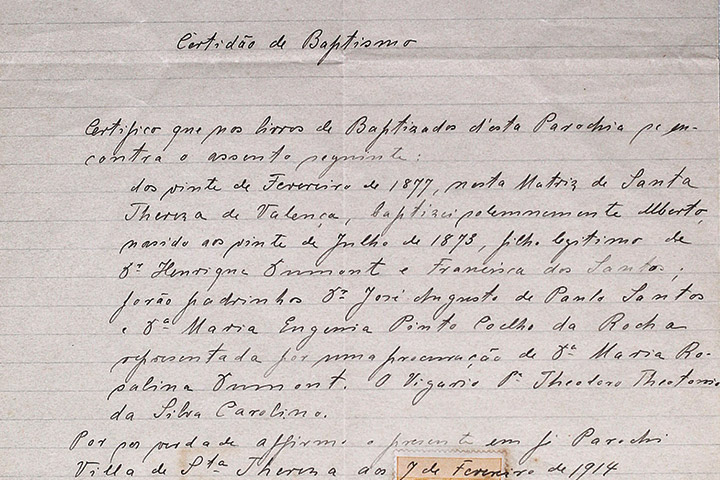 Certidão de Baptismo
Certifico que nos livros de Baptizados d'esta Parochia se en-
contra o assento seguinte:
Aos vinte de Fevereiro de 1877, nesta Matriz de Santa
Thereza de Valença, baptizei solemnemente Alberto,
nascido aos vinte de Julho de 1873, filho legitimo de
Dr Henrique Dumont e Francisca dos Santos.
forão padrinhos Dr José Augusto de Paula Santos
e Da Maria Eugenia Pinto Coelho da Rocha
representada por uma procuração de Da Maria Ro-
salina Dumont. O Vigario Pe Theodoro Theotonio
da Silva Carolino.
Por ser verdade affirmo o presente em fé Parochi
Villa de Sta Thereza aos 7 de Fevereiro de 1914